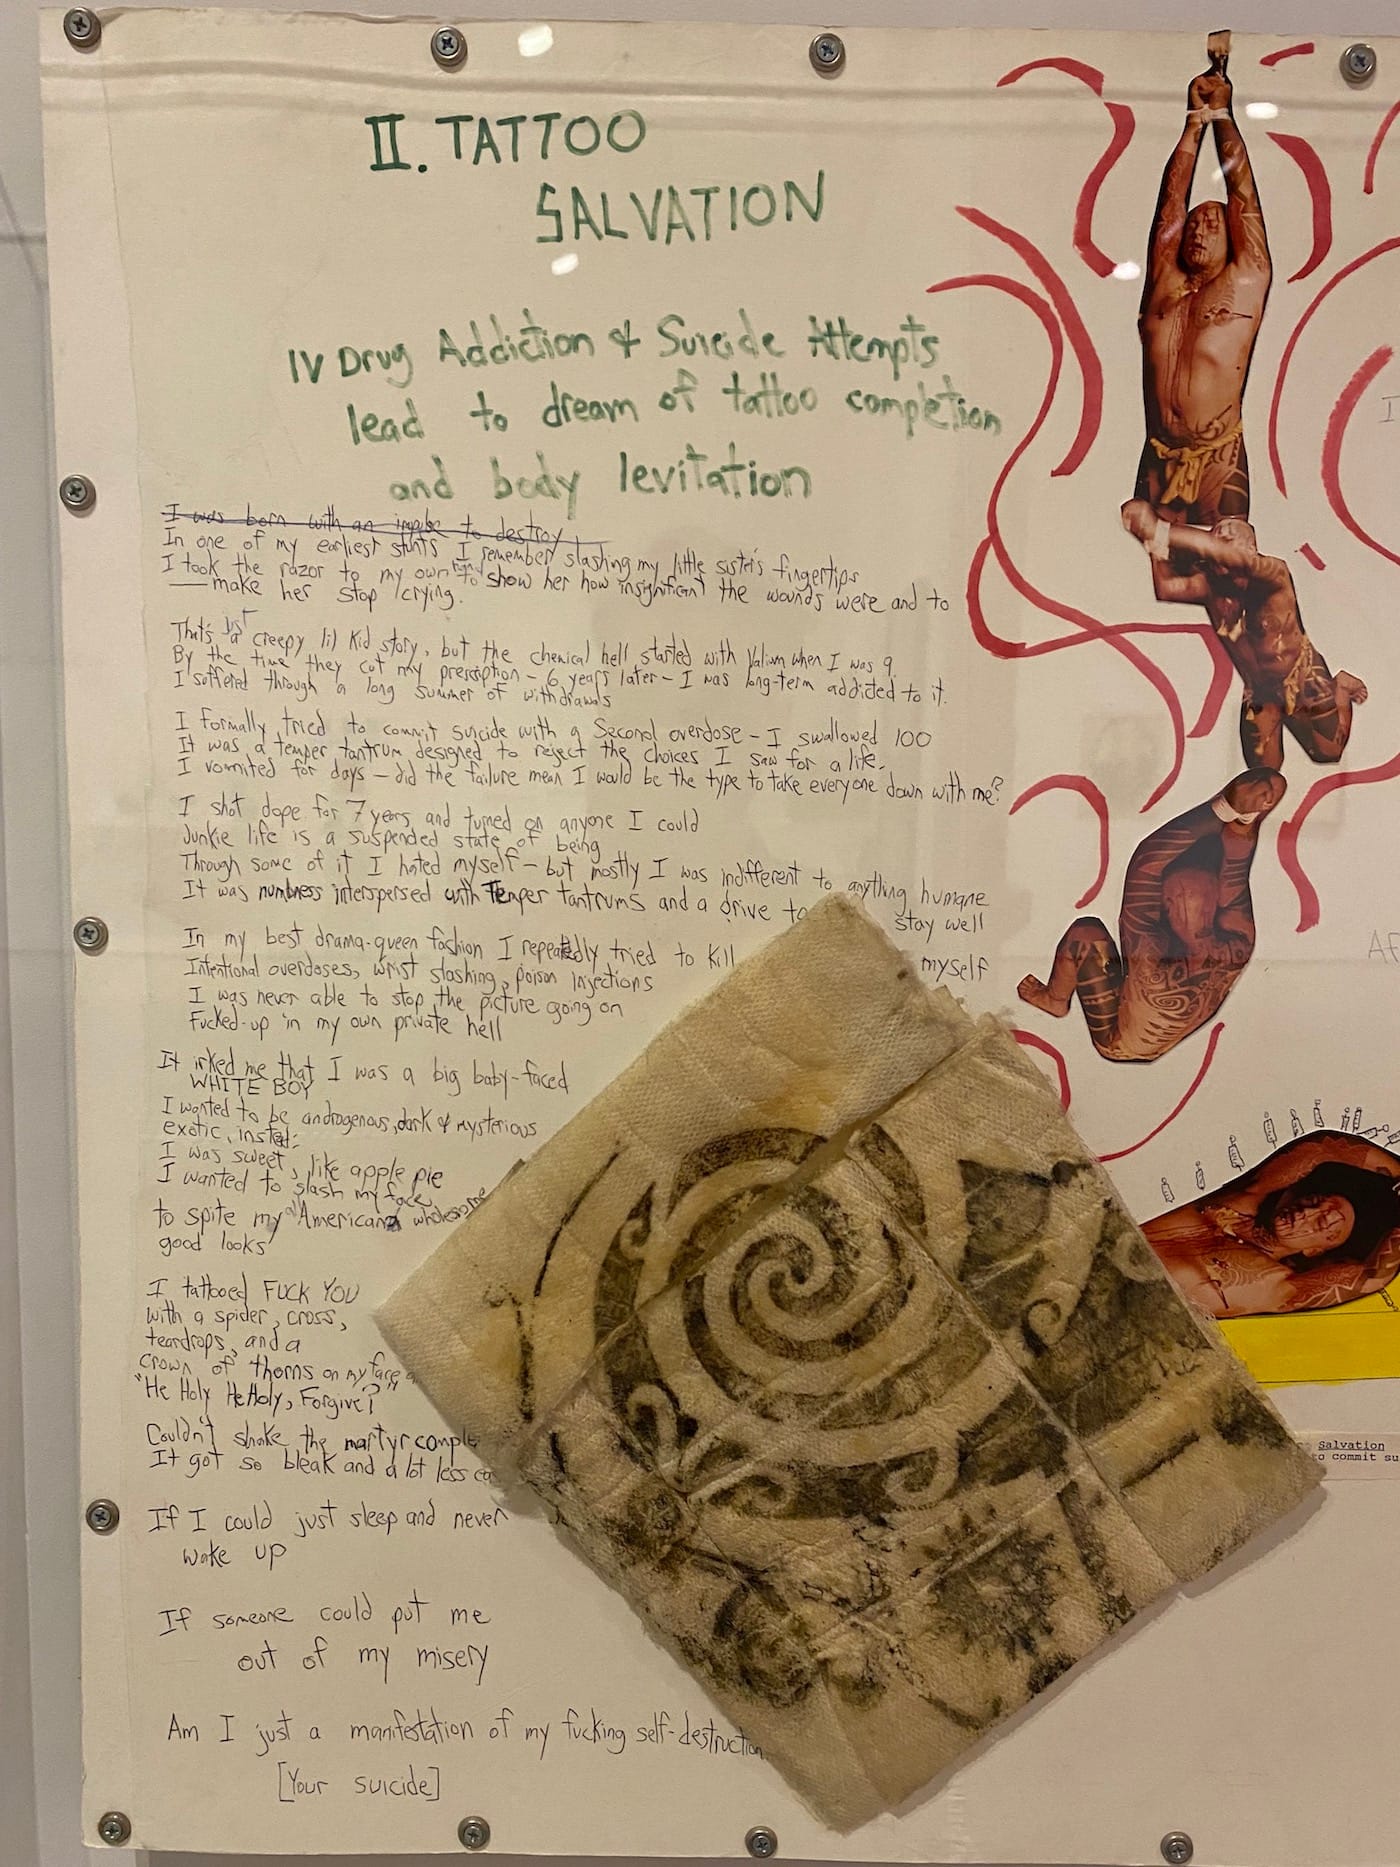 II. TATTOO
SALVATION
IV Drug Addiction & Suicide Attempts
lead to dream of tattoo completion
and body levitation
I was born with an impulse to destroy
In one of my earliest stunts I remember slashing my little sister's fingertips
I took the razor to my own right to show her how insignificant the wounds were and to
make her stop crying.
That's just a creepy lil kid story, but the chemical hell started with Valium when I was 9
By the time they cut my prescription - 6 years later - I was long-term addicted to it.
I suffered through a long summer of withdrawals
I formally tried to commit suicide with a Second overdose - I swallowed 100
It was a temper tantrum designed to reject the choices I saw for a life.
I vomited for days - did the failure mean I would be the type to take everyone down with me?
I shot dope for 7 years and turned on anyone I could
Junkie life is a suspended state of being
Through some of it I hated myself - but mostly I was indifferent to anything humane
It was numbness interspersed with Temper tantrums and a drive to stay well
In my best drama-queen fashion I repeatedly tried to kill myself
Intentional overdoses, wrist slashing, poison injections
I was never able to stop the picture going on
Fucked-up in my own private hell
It irked me that I was a big baby-faced
WHITE BOY
I wanted to be androgenous, dark & mysterious
exotic, insted:
I was sweet, like apple pie
I wanted to slash my face
to spite my all Americana wholesome
good looks
I tattooed FUCK YOU
with a spider, cross,
teardrops, and a
crown of thorns on my face
"He Holy He Holy, Forgive?"
Couldn't shake the martyr comple
It got so bleak and a lot less
If I could just sleep and never
wake up
If someone could put me
out of my misery
Am I just a manifestation of my fucking self-destruction
[Your suicide]
I
Af
Salvation
to commit su